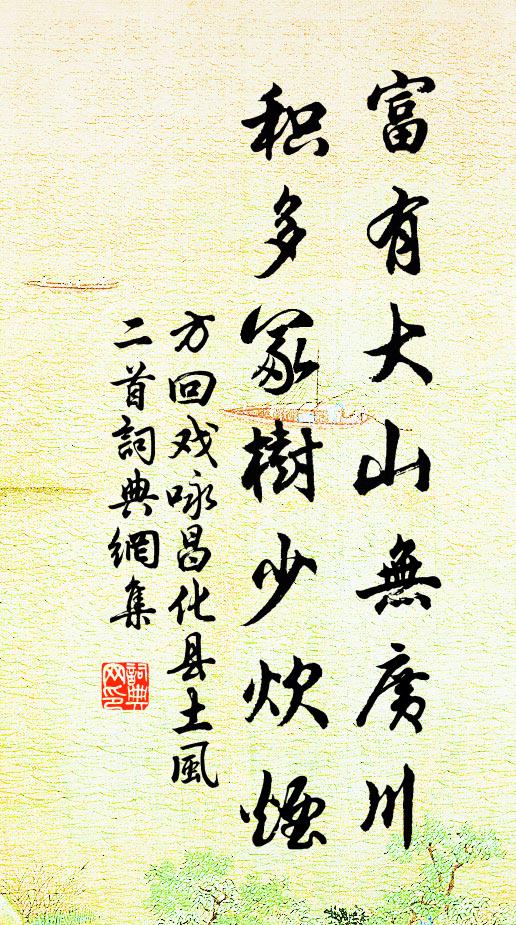 富有大山無廣川
积多冢樹少炊煙
方回戏咏昌化县土風
二首詞典網集
詞典網印